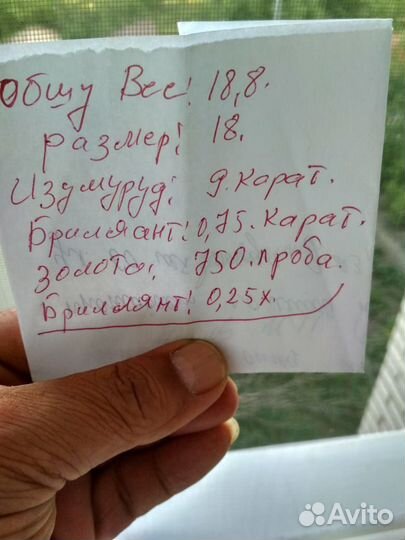 Общу Вес! 18,8.
размер! 18.
Издмуруд! 9. карат.
Бриллянт! 0,75. Карат.
Золото! 750. проба.
Бриллянт! 0,25х.
Avito